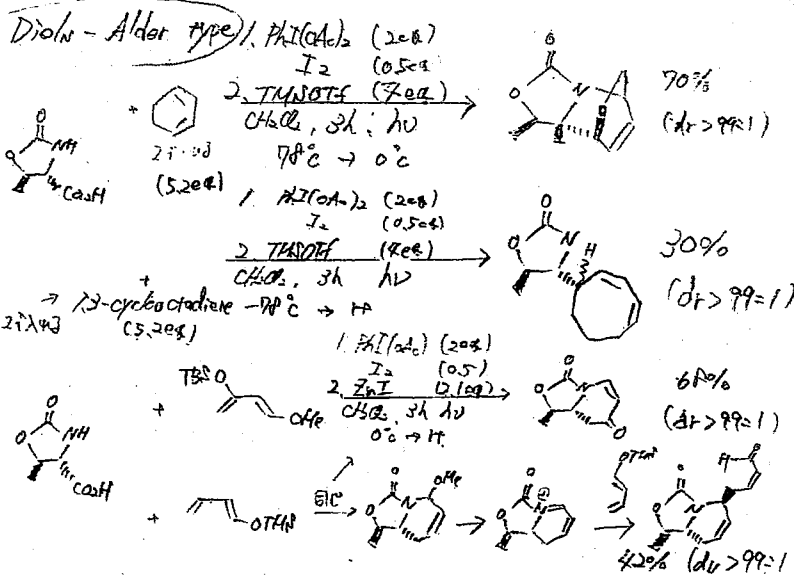 Diels-Alder type
1. PhI(OAc)2 (2eq)
I2 (0.5eq
2. TMSOTf (7eq)
CH2Cl2, 3h, hν
78°C → 0°C
70%
(dr > 99=1)
+
(5.2eq)
O
O
NH
CO2H
O
O
N
1. PhI(OAc)2 (2eq)
I2 (0.5eq)
2. TMSOTf (4eq)
CH2Cl2, 3h hν
+
1,3-cyclooctadiene -78°C → rt
(5.2eq)
O
O
N
H
30%
(dr > 99=1)
1. PhI(OAc) (2eq)
I2 (0.5)
2. ZnI (2.1eq)
CH2Cl2 3h hν
0°C → rt
O
O
NH
CO2H
+
TBSO
OMe
O
O
N
O
68%
(dr > 99=1)
+
OTMS
同じ
O
O
N
OMe
O
O
N
⊕
OTMS
O
O
N
H
O
42% (dr > 99=1